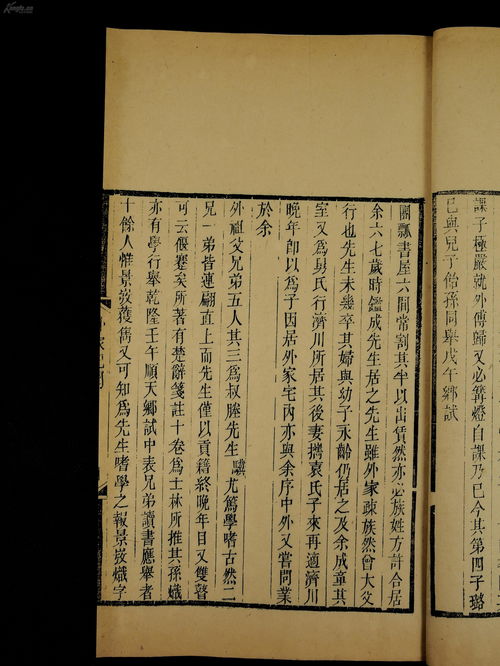 課子極嚴就外傅歸又必篝燈自課乃已今其第四子璐
已與兒子飴孫同舉戊午鄉試
團瓢書屋六間常割其半以出賃然亦必族姓方許合居
余六七歲時鑑成先生居之先生雖外家疎族然曾大父
行也先生未幾卒其婦與幼子永齡仍居之及余成童其
室又為舅氏行濟川所居其後妻攜袁氏子來再適濟川
晚年卽以為子因居外家宅內亦與余序中外又嘗問業
於余
外祖父兄弟五人其三為叔塍先生驥尤篤學嗜古然二
兄一弟皆連翩直上而先生僅以貢籍終晚年目又雙瞽
可云偃蹇矣所著有楚辭箋註十卷為士林所推其孫熾
亦有學行舉乾隆壬午順天鄉試中表兄弟讀書應舉者
十餘人惟景敥獲雋又可知為先生嗜學之報景敥熾字
Kongfz.cn